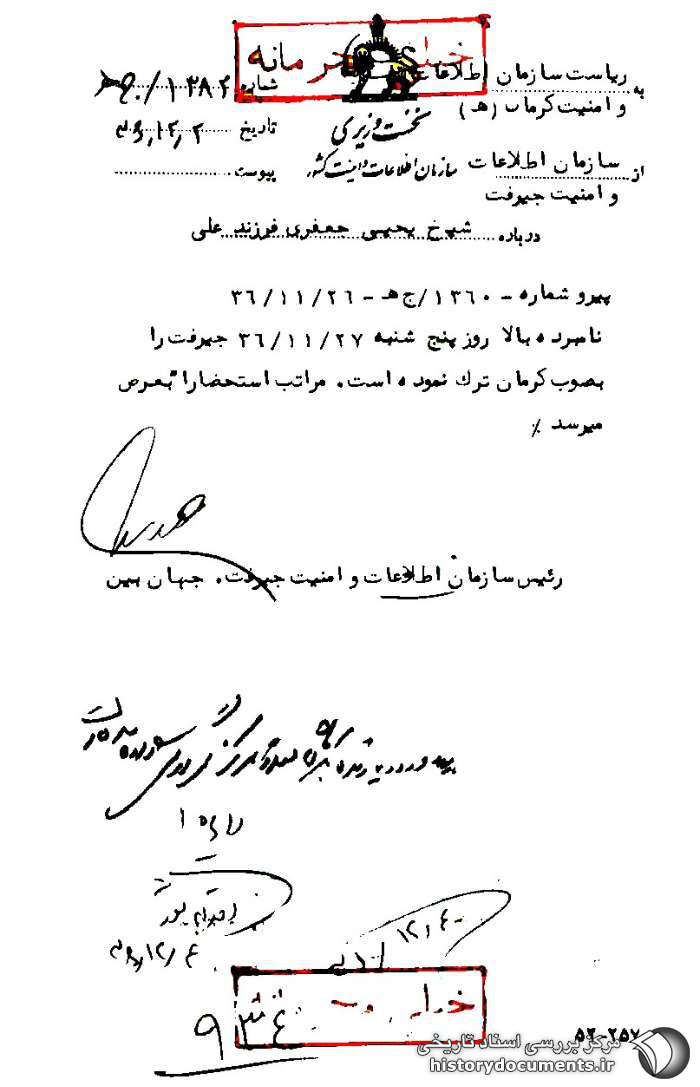 خیلی محرمانه
به ریاست سازمان اطلاعات
و امنیت کرمان (هـ)
شماره ۱۳۸۲/ج هـ
نخست وزیری
تاریخ ۳۶/۱۲/۲
از سازمان اطلاعات
و امنیت جیرفت
سازمان اطلاعات و امنیت کشور
پیوست
درباره شیخ یحیی جعفری فرزند علی
پیرو شماره - ۱۳۶۰/ج هـ - ۳۶/۱۱/۲۶
نامبرده بالا روز پنج شنبه ۳۶/۱۱/۲۷ جیرفت را
بصوب کرمان ترک نموده است. مراتب استحضارا" بعرض
میرسد ٪
رئیس سازمان اطلاعات و امنیت جیرفت. جهان بین
۱۲/۴
۳۶/۱۲/۴
۹۳۴
۵۲-۲۵۷
مرکز بررسی اسناد تاریخی
historydocuments.ir